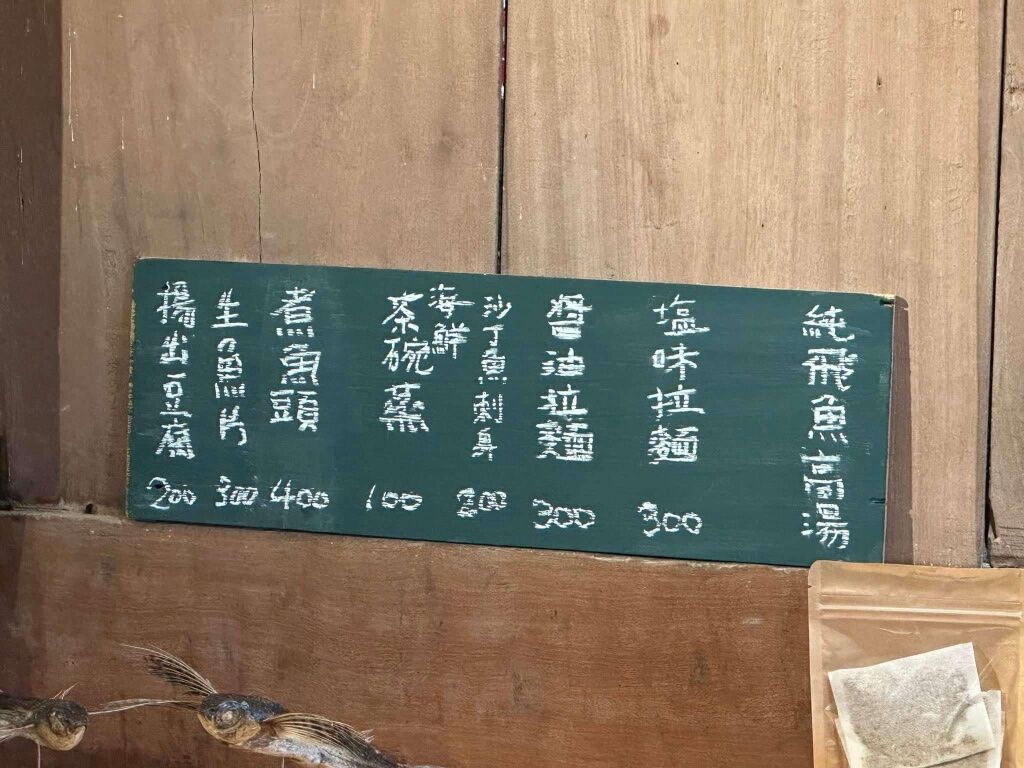 純飛魚高湯
塩味拉麵 300
醬油拉麵 300
沙丁魚刺身 200
海鮮
茶碗蒸 100
煮魚頭 400
生魚片 300
揚出豆腐 200